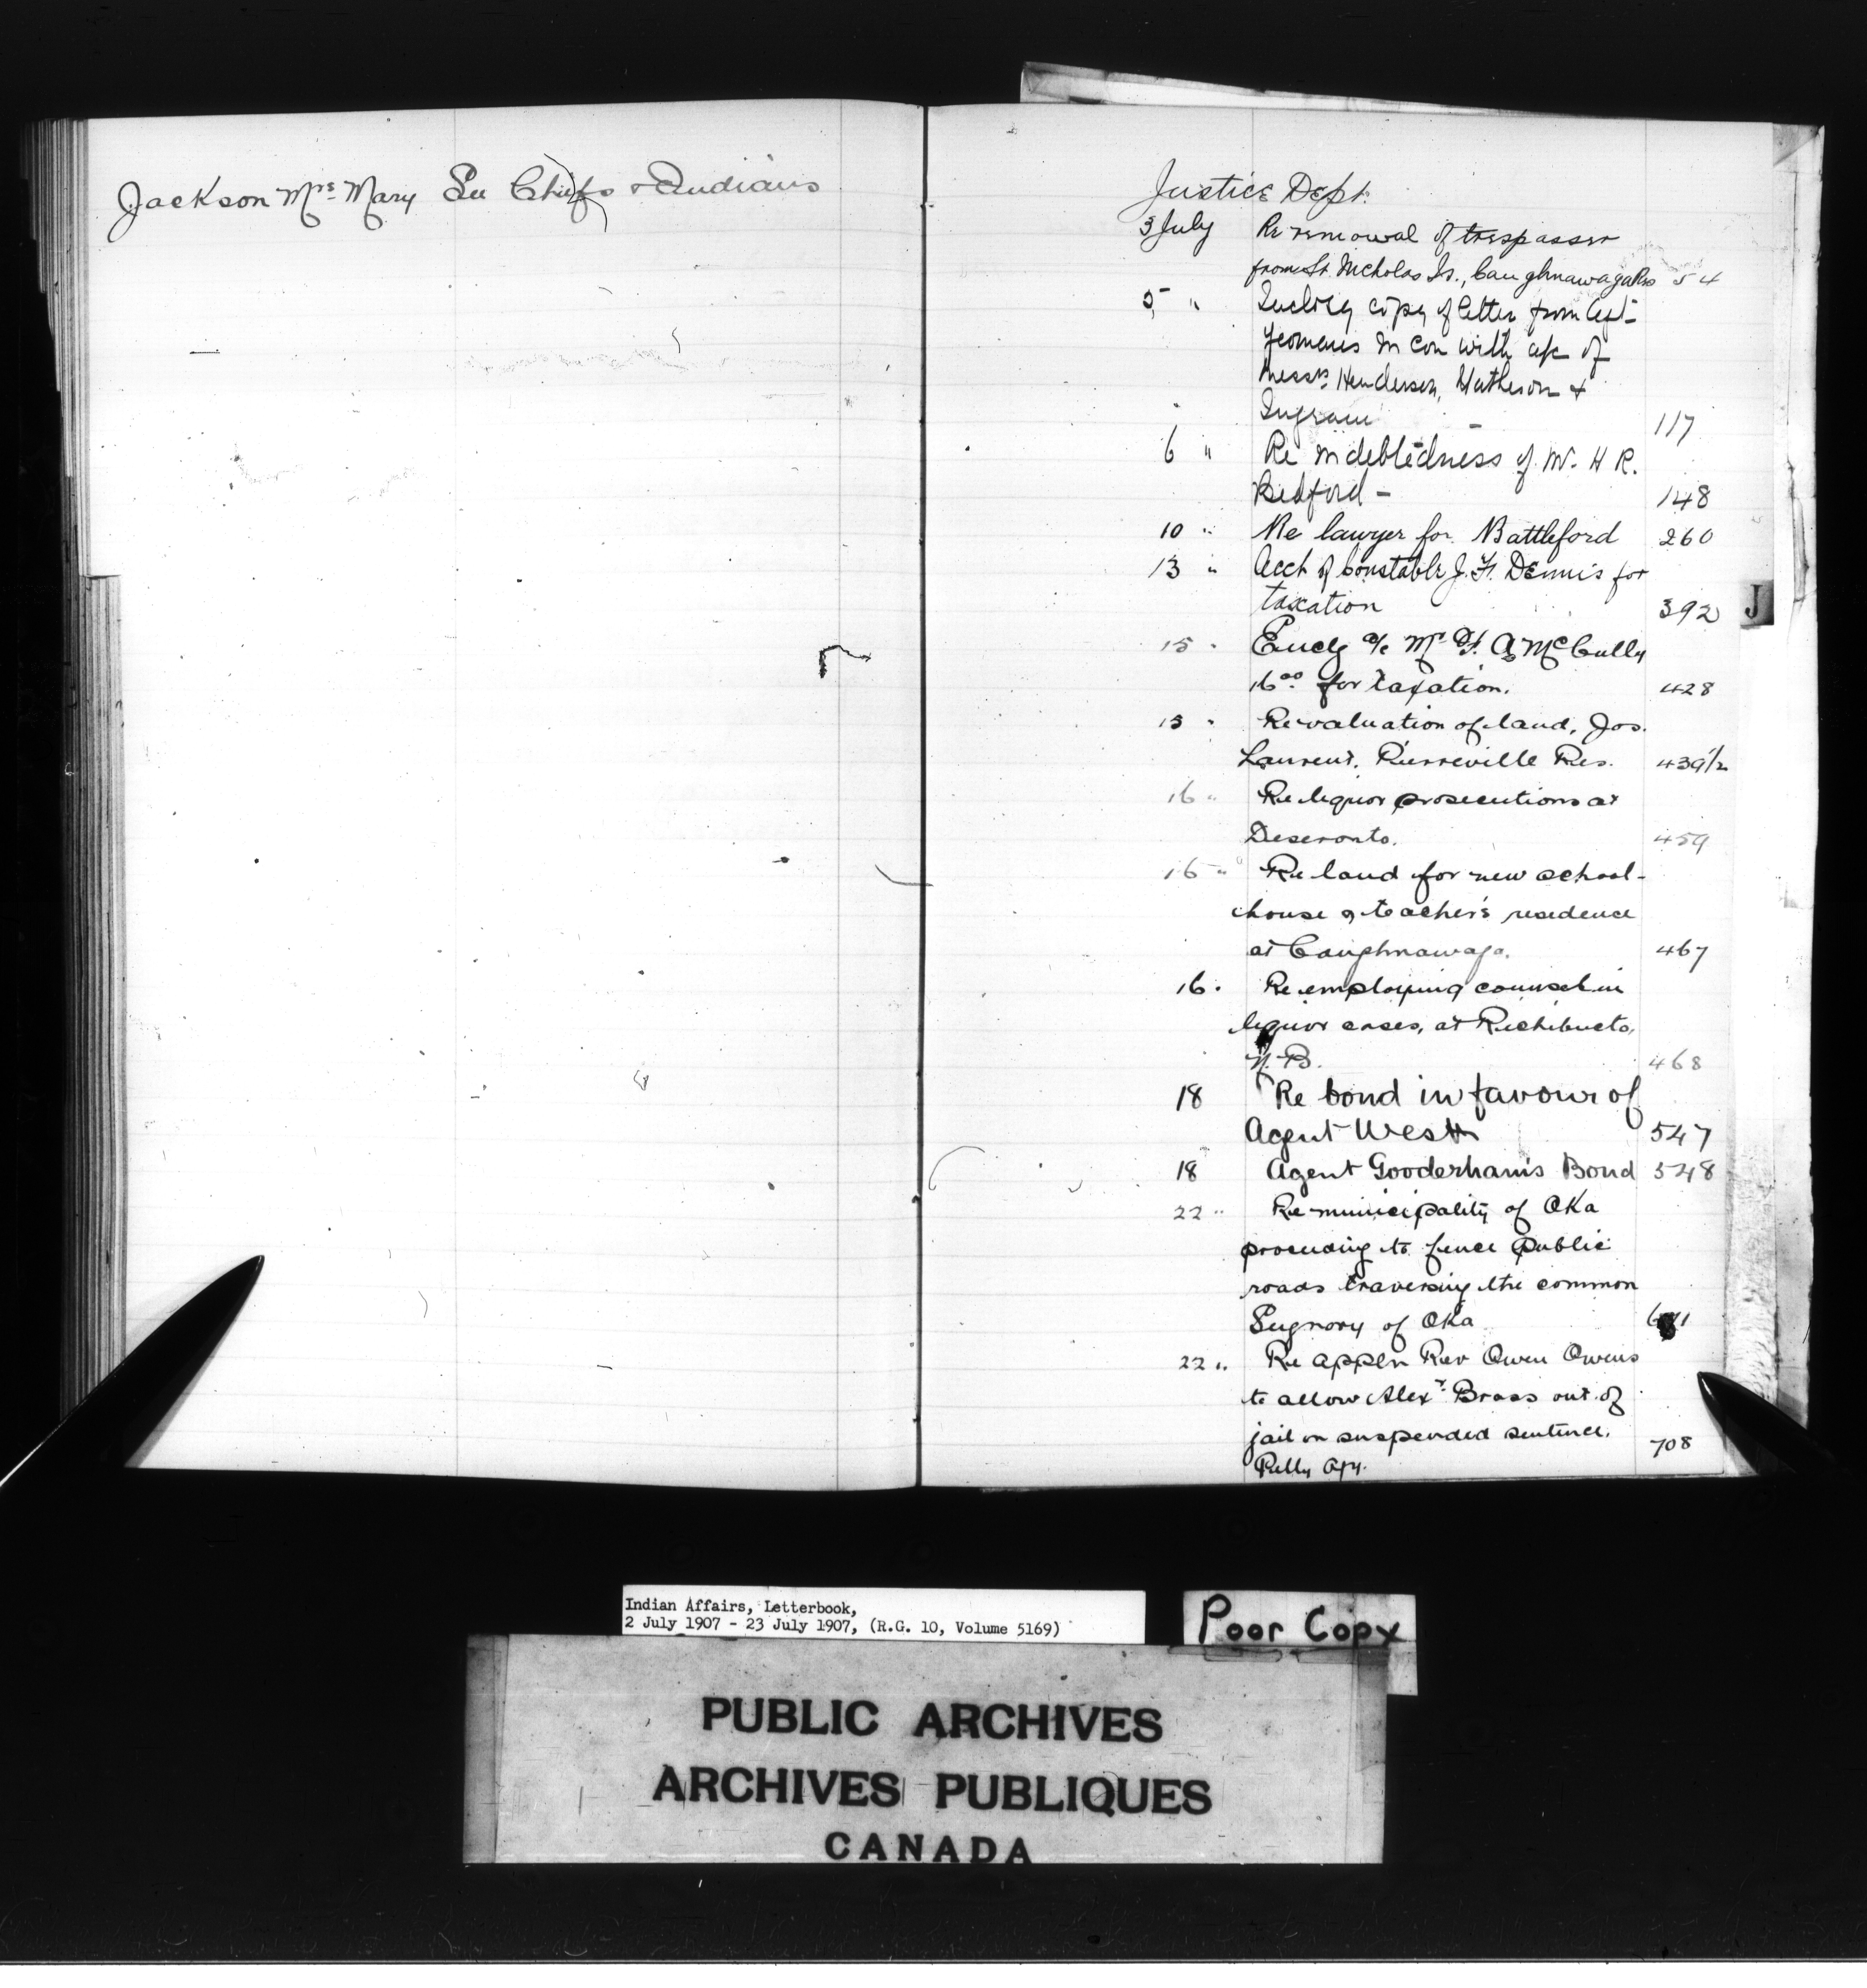 Jackson Mrs Mary See Chiefs & Indians
Justice Dept.
3 July Re removal of trespasser
from St. Nicholas Is., Caughnawaga Res 54
5 " Inclosg copy of letter from Agt
Yeomans in con with a/c of
Messrs. Henderson, Matheson &
Ingram 117
6 " Re indebtedness of W. H R.
Bedford - 148
10 " Re lawyer for Battleford 260
13 " Acct of Constable J. H. Dennis for
taxation 392
15 " Enclg a/c Mr F. A. McCully
16.00 for taxation. 428
15 " Re valuation of land, Jos.
Laurent, Pierreville Res. 439 1/2
16 " Re liquor prosecutions at
Deseronto. 459
16 " Re land for new school-
house & teacher's residence
at Caughnawaga. 467
16 " Re employing counsel in
liquor cases, at Richibucto,
N.B. 468
18 Re bond in favour of
Agent West 547
18 Agent Gooderham's Bond 548
22 " Re municipality of Oka
proceeding to fence public
roads traversing the common
Seignory of Oka
22 " Re appln Rev Owen Owens
to allow Alexr Brass out of
jail on suspended sentence. 708
Pelly Agy.
J
Indian Affairs, Letterbook,
2 July 1907 - 23 July 1907, (R.G. 10, Volume 5169)
Poor Copy
PUBLIC ARCHIVES
ARCHIVES PUBLIQUES
CANADA